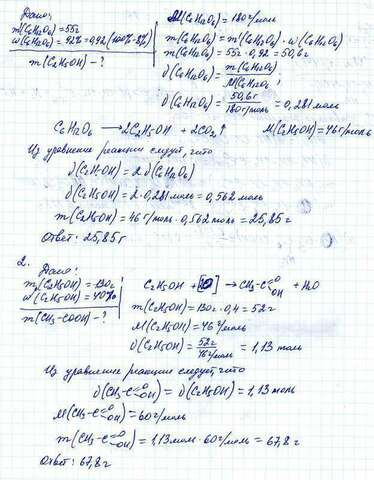 Дано:
m(C₆H₁₂O₆)=55г
ω(C₆H₁₂O₆)=92%=0,92(100%-8%)
m(C₂H₅OH)-?
M(C₆H₁₂O₆)=180г/моль
m(C₆H₁₂O₆)=m(C₆H₁₂O₆)·ω(C₆H₁₂O₆)
m(C₆H₁₂O₆)=55г·0,92=50,6г
υ(C₆H₁₂O₆)=m(C₆H₁₂O₆)/M(C₆H₁₂O₆);
υ(C₆H₁₂O₆)=50,6г/180г/моль=0,281моль
C₆H₁₂O₆ → 2C₂H₅OH + 2CO₂↑ M(C₂H₅OH)=46г/моль
Из уравнения реакции следует, что
υ(C₂H₅OH)=2υ(C₆H₁₂O₆)
υ(C₂H₅OH)=2·0,281моль=0,562 моль
m(C₂H₅OH)=46г/моль·0,562моль=25,85г
Ответ: 25,85г
2.
Дано:
m(C₂H₅OH)=130г
ω(C₂H₅OH)=40%
m(CH₃-COOH)-?
C₂H₅OH + [O] → CH₃-C=O OH + H₂O
m(C₂H₅OH)=130г·0,4=52г
M(C₂H₅OH)=46г/моль
υ(C₂H₅OH)=52г/46г/моль=1,13 моль
Из уравнения реакции следует, что
υ(CH₃-C=O OH)=υ(C₂H₅OH)=1,13 моль
M(CH₃-C=O OH)=60г/моль
m(CH₃-C=O OH)=1,13моль·60г/моль=67,8г
Ответ: 67,8г